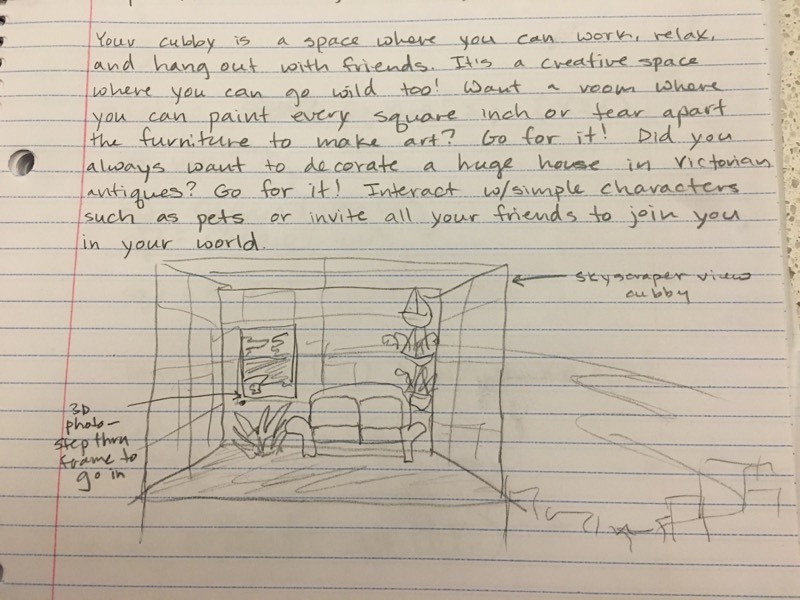 Your cubby is a space where you can work, relax,
and hang out with friends. It's a creative space
where you can go wild too! Want a room where
you can paint every square inch or tear apart
the furniture to make art? Go for it! Did you
always want to decorate a huge house in Victorian
antiques? Go for it! Interact w/simple characters
such as pets or invite all your friends to join you
in your world.
skyscraper view
cubby
3D
photo–
step thru
frame to
go in